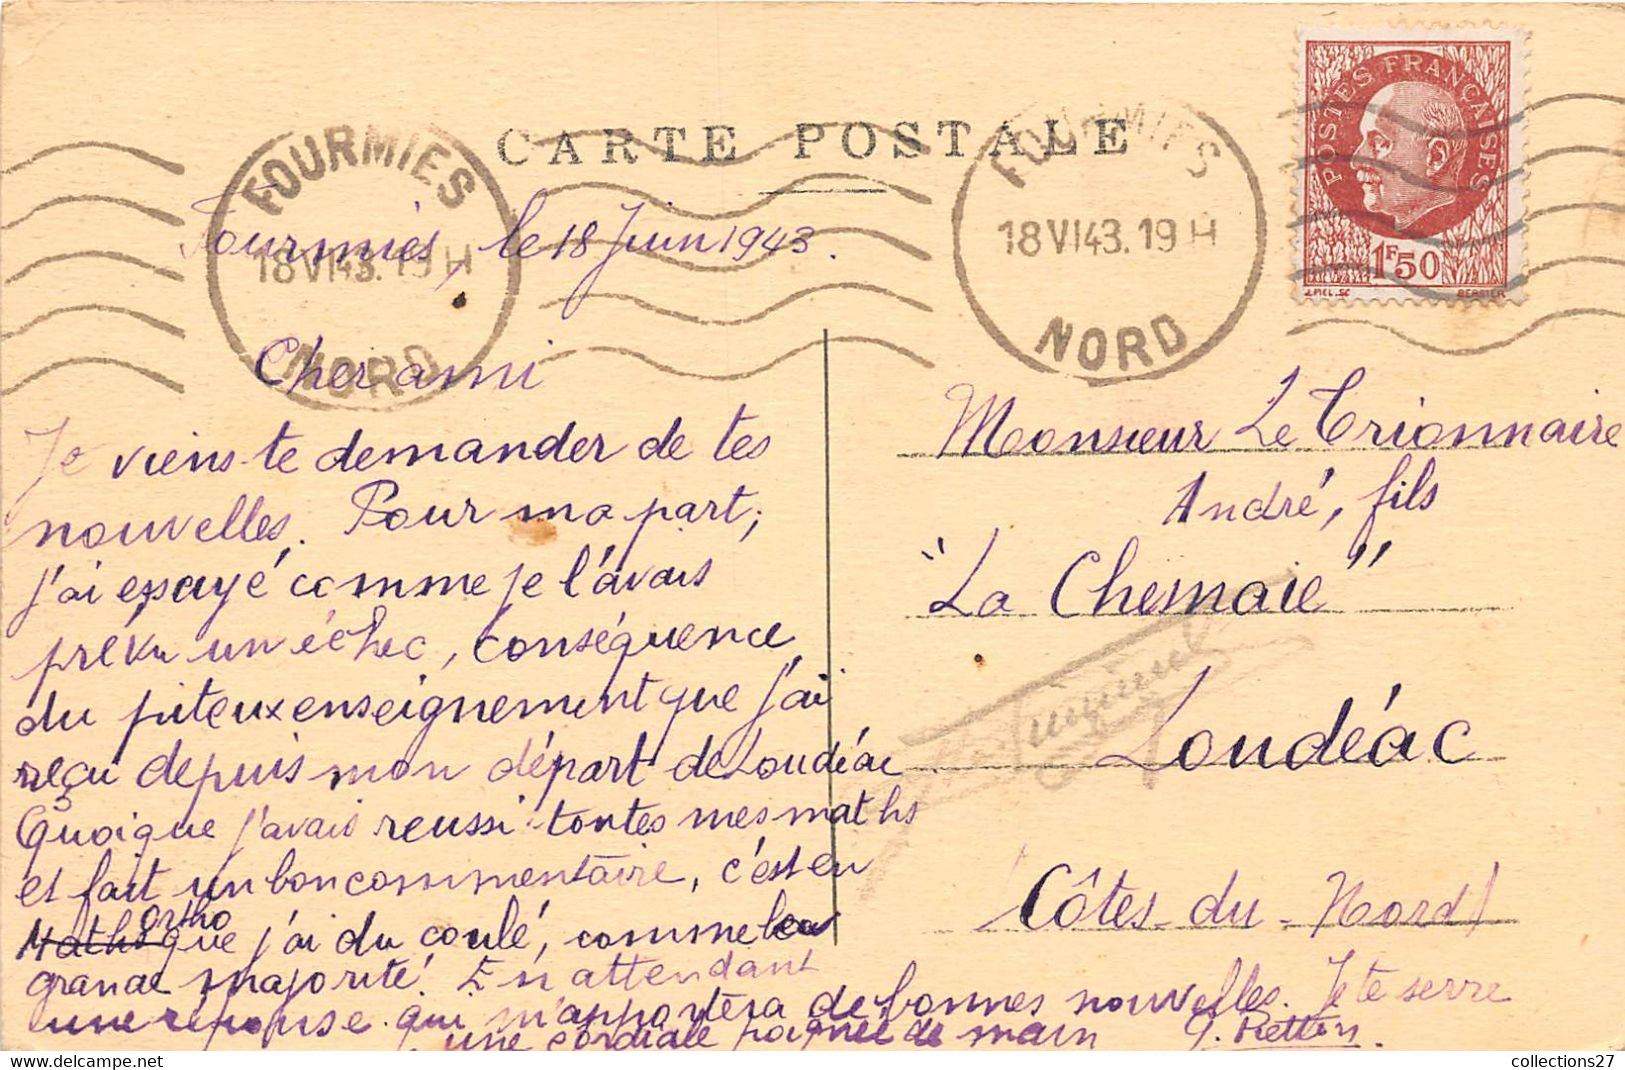 CARTE POSTALE
FOURMIES
18 VI 43. 19 H
NORD
FOURMIES
18 VI 43. 19 H
NORD
POSTES FRANÇAISES
1F50
BERSIER
Fourmies, le 18 Juin 1943.
Cher ami
Je viens te demander de tes
nouvelles. Pour ma part,
j'ai essayé comme je l'avais
prévu un échec, conséquence
du piteux enseignement que j'ai
reçu depuis mon départ de Loudéac
Quoique j'avais reussi toutes mes maths
et fait un bon commentaire, c'est en
ortho
Maths que j'ai du coulé, comme
grande majorité. En attendant
une réponse qui m'apportera de bonnes nouvelles. Je te serre
une cordiale poignée de main
Monsieur Le Trionnaire
André, fils
"La Chesnaie"
Loudéac
Côtes-du-Nord
collections27